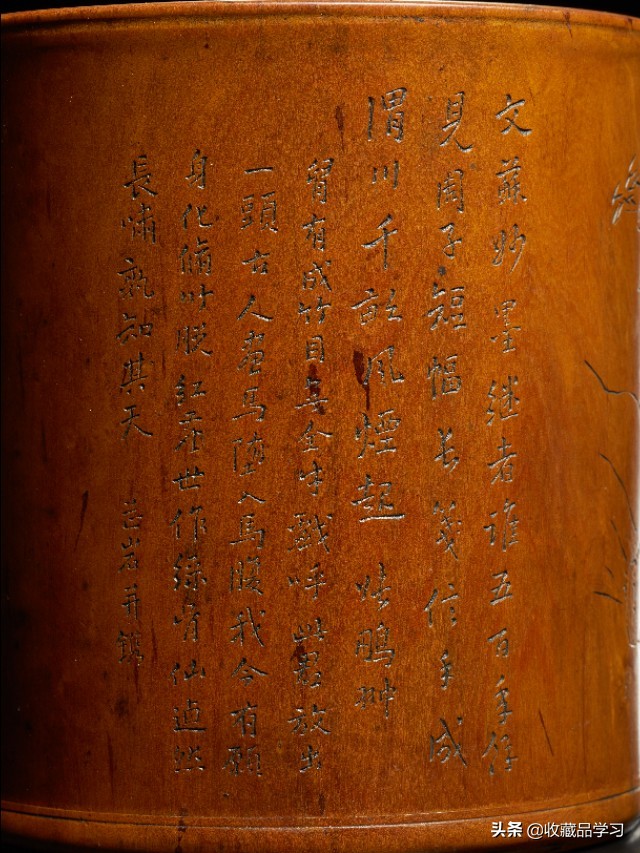 文蘇妙墨继者谁五百年後
見周子短幅長箋信手成
渭川千畝風煙起 張鵬翀
胷有成竹目無全牛戲呼此君放出
一頭古人畫馬墮入馬腹我今有願
身化脩竹脱紅世作綠仙逌然
長嘯孰知其天 芷岩并鐫
头条 @收藏品学习